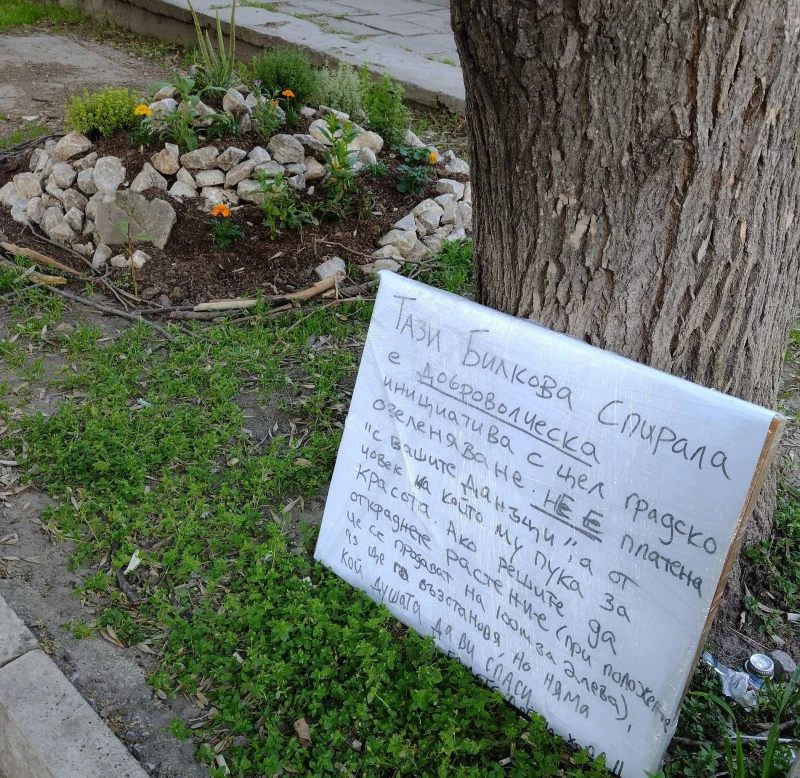 Тази Билкова Спирала
е доброволческа
инициатива с цел градско
озеленяване. НЕ Е платена
"с вашите данъци", а от
човек на който му пука за
красота. Ако решите да
откраднете растение (при положение
че се продават на 100м за 2лева),
аз ще го възстановя, но няма
кой душата да ви спаси